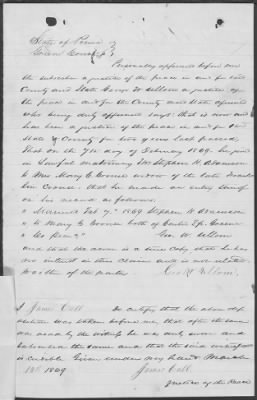 State of Penna
Green County
Personally appeared before me
the subscriber a justice of the peace in and for said
County and State George W Sellom a justice of
the peace in and for the County and State aforesaid
who being duly affirmed says that is now and
has been a justice of the peace in and for said
State & County for two years last passed
That on the 7th day of February 1869 he joined
in lawful matrimony Mr Stephen W
to Mrs Mary E widow of the late
that he made an entry thereof
on his record as follows.
" Married Feb 7th 1869 Stephen W
" to Mary E both of Center Tp Greene
" Co Penn" Geo. W. Sellom
and that the above is a true Copy that he has
no interest in this claim and is not
Geo W. Sellom
I James Call do certify that the above
was taken before me, that after the same
was read by the witness he was duly sworn and
subscribed the same and that the said
is credible Given under my hand March
1869 James Call
Justice of the Peace